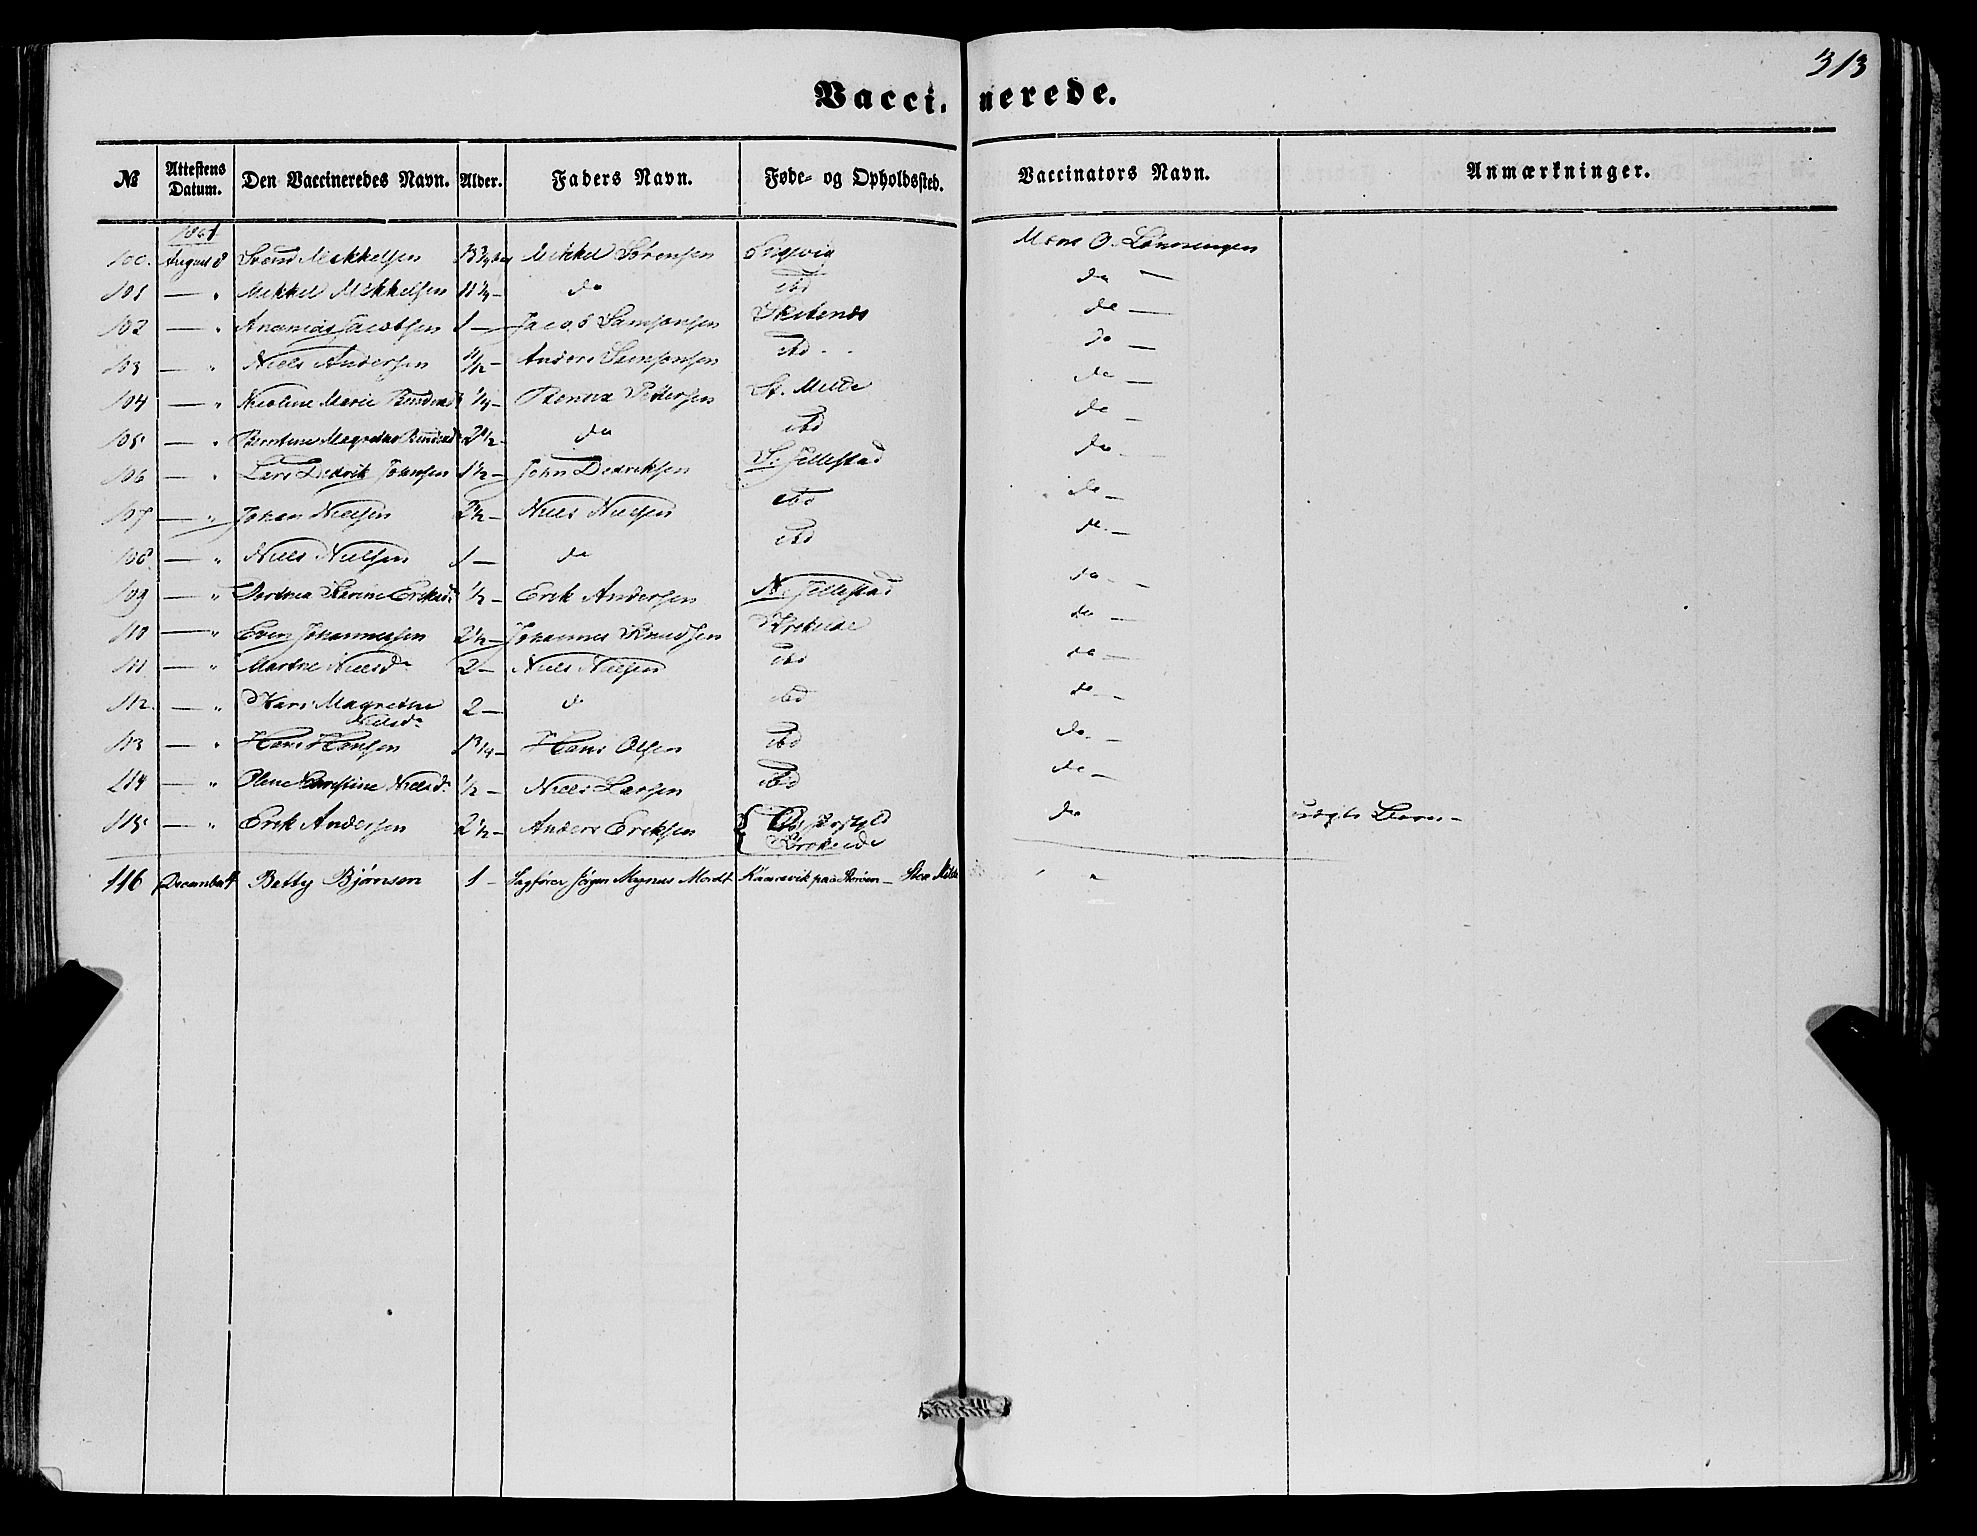 313
Vaccinerede.
№ Attestens Datum. Den Vaccineredes Navn. Alder. Faders Navn. Føde- og Opholdssted. Vaccinators Navn. Anmærkninger.
100. August 8 Svend Mikkelsen Mikkel Sørensen Mons O. Lønningen
101 — " Mikkel Mikkelsen do ibd do —
102 — " Ananias Jacobsen 1 — Jacob Samsonsen Skitenes do —
103 — " Niels Andersen 1/2 — Anders Samsonsen ibd do —
104 — " Nicoline Marie 1/4 — Pettersen St. Milde do —
105 — " 2 1/2 — do ibd do —
106 — " Lars Didrik Johnsen 1 1/2 — John Didriksen S: Jellestad do —
107 — " Johan Nielsen 2 1/2 — Niels Nielsen ibd do —
108 — " Niels Nielsen 1 — do ibd do —
109 — " Dorthea Karine Eriksd. 1/2 — Erik Andersen N: Jellestad do —
110 — " Even Johannessen 2 1/2 — Johannes Knudsen Krokeide do —
111 — " Marthe Nielsdr 2 — Niels Nielsen ibd do —
112. — " Kari Magrethe 2 — do ibd do —
Nielsdr
113 — " Hans Hansen 1 3/4 — Hans Olsen ibd do. —
114 — " Olene Christine Nielsdr 1/2 — Niels Larsen ibid do —
115 — " Erik Andersen 2 1/2 — Anders Eriksen do
Krokeide
116 December 4 Betty Bjørnsen 1 — Sagfører Jørgen Magnus Mordt Store Milde "